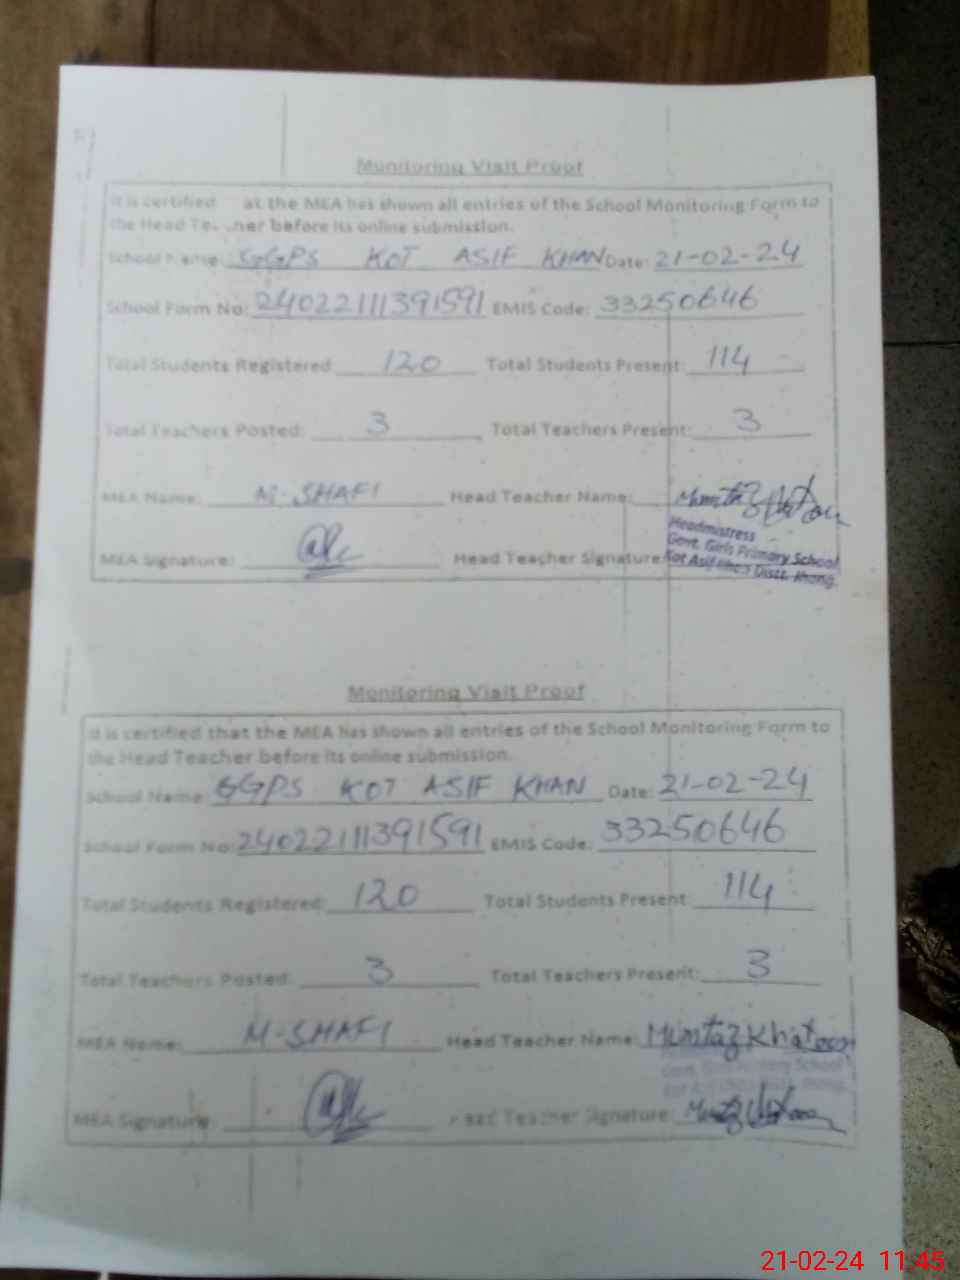 Monitoring Visit Proof
It is certified at the MEA has shown all entries of the School Monitoring Form to
the Head Te. .her before its online submission.
School Name: GGPS KOT ASIF KHAN Date: 21-02-24
School Form No: 24022111391591 EMIS Code: 33250646
Total Students Registered 120 Total Students Present: 114
Total Teachers Posted: 3 Total Teachers Present: 3
MEA Name: M-SHAFI Head Teacher Name: Mumtaz Khatoon
Headmistress
Govt. Girls Primary School
MEA Signature: Head Teacher Signature Kot Asif Khan Distt. Jhang.
Monitoring Visit Proof
It is certified that the MEA has shown all entries of the School Monitoring Form to
the Head Teacher before its online submission.
School Name: GGPS KOT ASIF KHAN Date: 21-02-24
School Form No: 24022111391591 EMIS Code: 33250646
Total Students Registered: 120 Total Students Present: 114
Total Teachers Posted: 3 Total Teachers Present: 3
MEA Name: M-SHAFI Head Teacher Name: Mumtaz Khatoon
Govt. Girls Primary School
MEA Signature: Head Teacher Signature: Mumtaz Khatoon
21-02-24 11:45